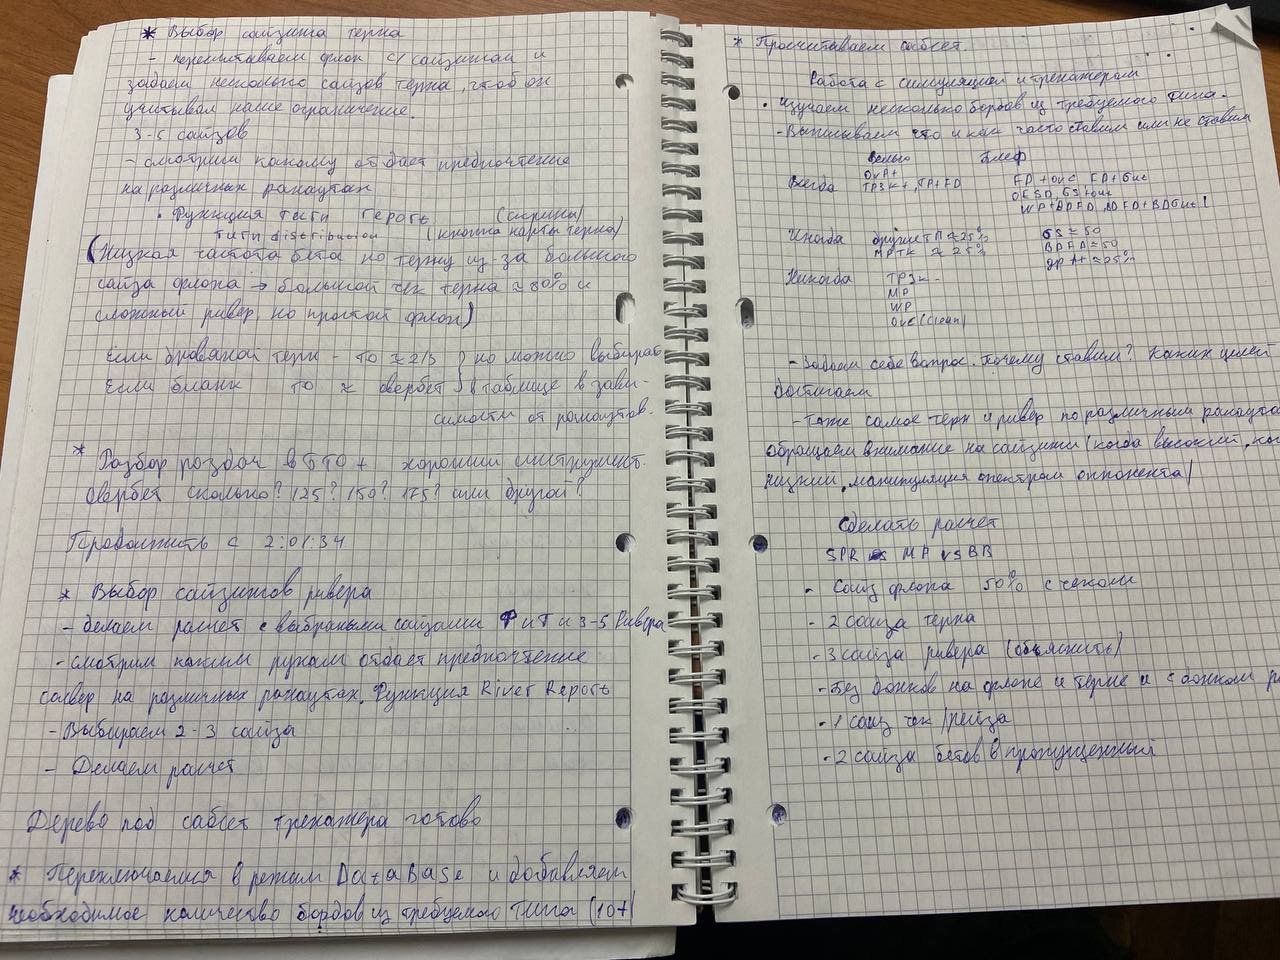 * Выбор сайзинга терна
- пересчитываем флоп с 1 сайзингом и
задаем несколько сайзов терна, чтоб он
учитывал наше ограничение.
3-5 сайзов
- смотрим какому отдает предпочтение
на различных ранаутах
• Функция тёрн Геротъ
distribution (кнопка карты терна)
(Низкая частота бета по терну из-за большого
сайза флопа → большой чек терна ≈ 80% и
сложный ривер но простой флоп)
Если дровяной терн - то ≈ 2/3 } но можно выбирать
Если бланк то ≈ овербет } в таблице в зави-
симости от ранаутов.
* Разбор раздач в GTO + хороший инструмент.
Овербет сколько? 125? 150? 175? или другой?
Продолжить с 2:01:34
* Выбор сайзингов ривера
- делаем расчет с выбраными сайзами Ф и Т и 3-5 Ривера
- смотрим каким рукам отдает предпочтение
солвер на различных ранаутах. Функция River Report
- Выбираем 2-3 сайза
- Делаем расчет
Дерево под сабсет тренажера готово
* Переключаемся в режим DataBase и добавляем
необходимое количество бордов из требуемого типа (10+)
* Просчитываем сабсет.
Работа с симуляцией и тренажером
• изучаем несколько бордов из требуемого типа.
- Выписываем что и как часто ставим или не ставим
Велью блеф
Всегда OvP+ FD + ovc, FD + бис
TP3k+, TP+FD OESD, GS+ovc
WP+BDFD, BDFD+BDGut
Иногда другие ТП ≈ 25% GS ≈ 50
МРТК ≈ 25% BDFD ≈ 50
≈ 25%
Никогда TP3k-
MP
WP
ovc (clean)
- Задаем себе вопрос. Почему ставим? Каких целей
достигаем
- Тоже самое терн и ривер по различным ранаутам
обращаем внимание на сайзинги (когда высокий,
низкий, манипуляция спектром оппонента)
Сделать расчет
SPR MP vs BB
- Сайз флопа 50% с чеком
- 2 сайза терна
- 3 сайза ривера (объяснить)
- Без донков на флопе и терне и с донком
- 1 сайз чек/рейза
- 2 сайза бетов в пропущенный